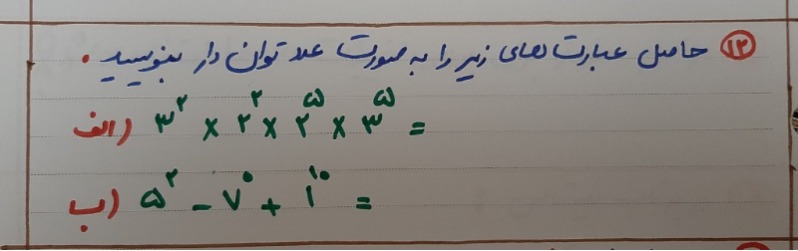 ۱۲ حاصل عبارت های زیر را به صورت عدد توان دار بنویسید.
الف) ۳^۲ × ۲^۲ × ۲^۵ × ۳^۵ =
ب) ۵^۲ - ۷^۰ + ۱^۱۰ =